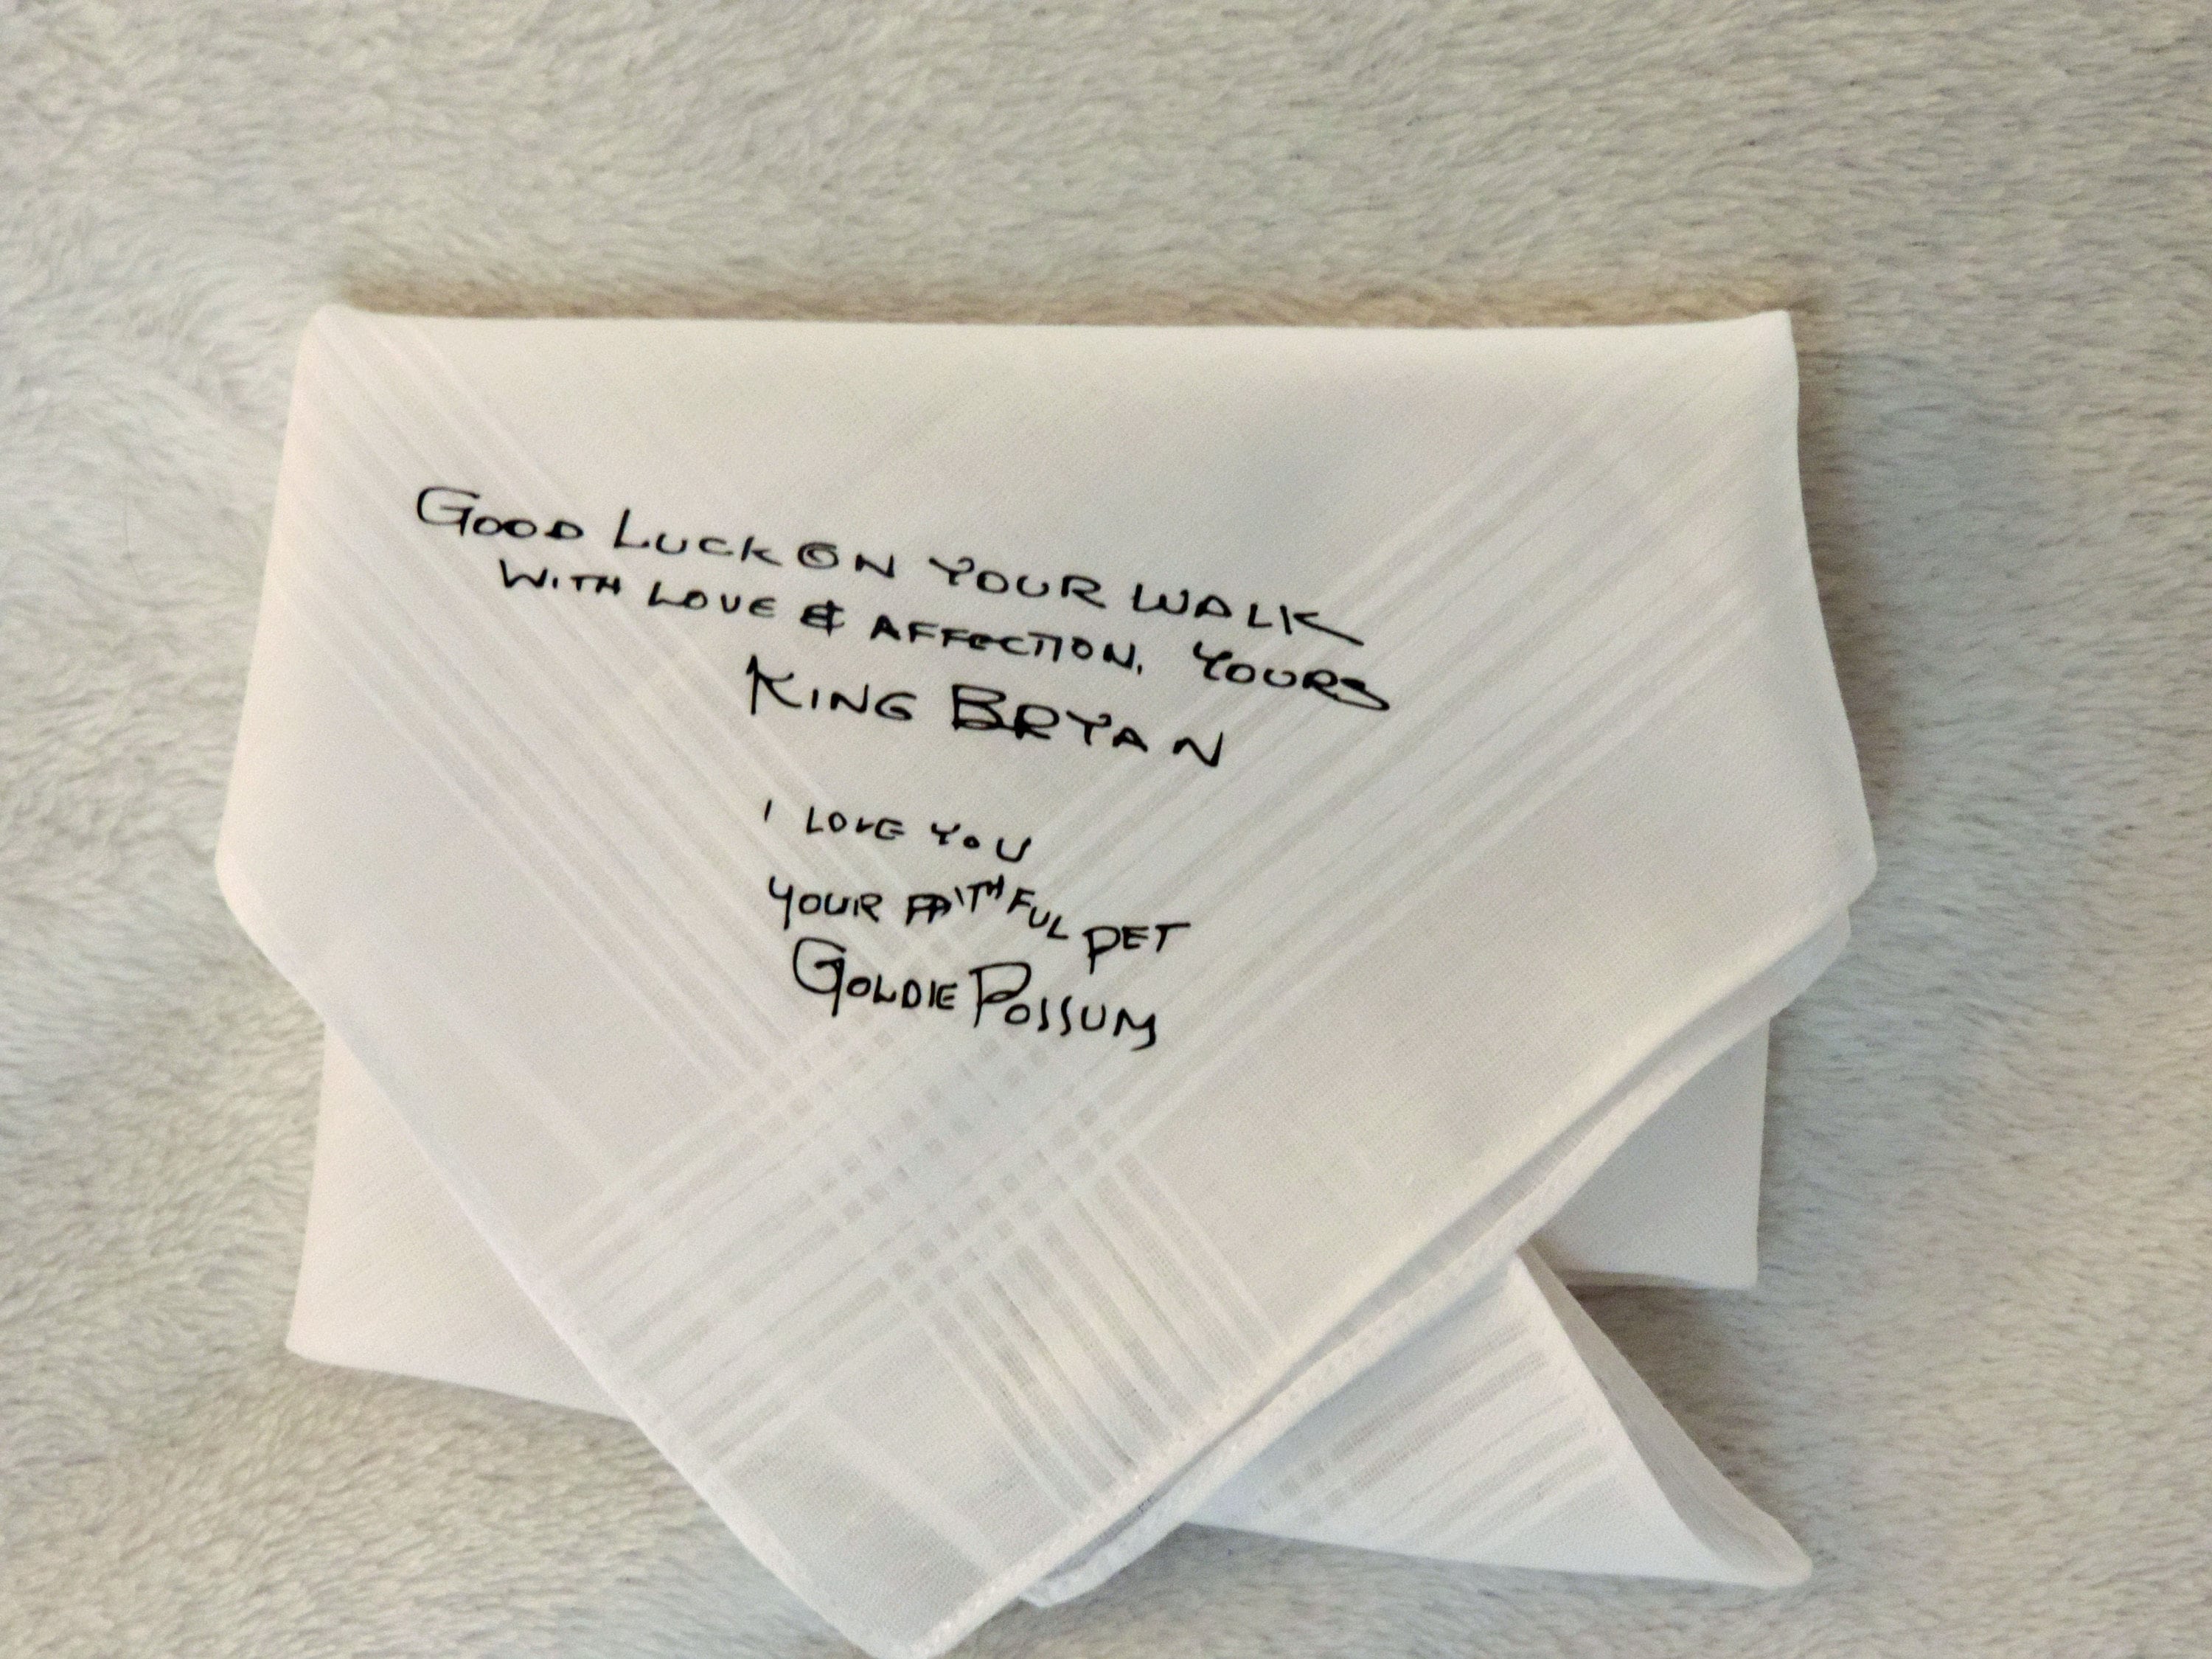 GOOD LUCK ON YOUR WALK
WITH LOVE & AFFECTION. YOURS
KING BRYAN
I LOVE YOU
YOUR FAITHFUL PET
GOLDIE POSSUM